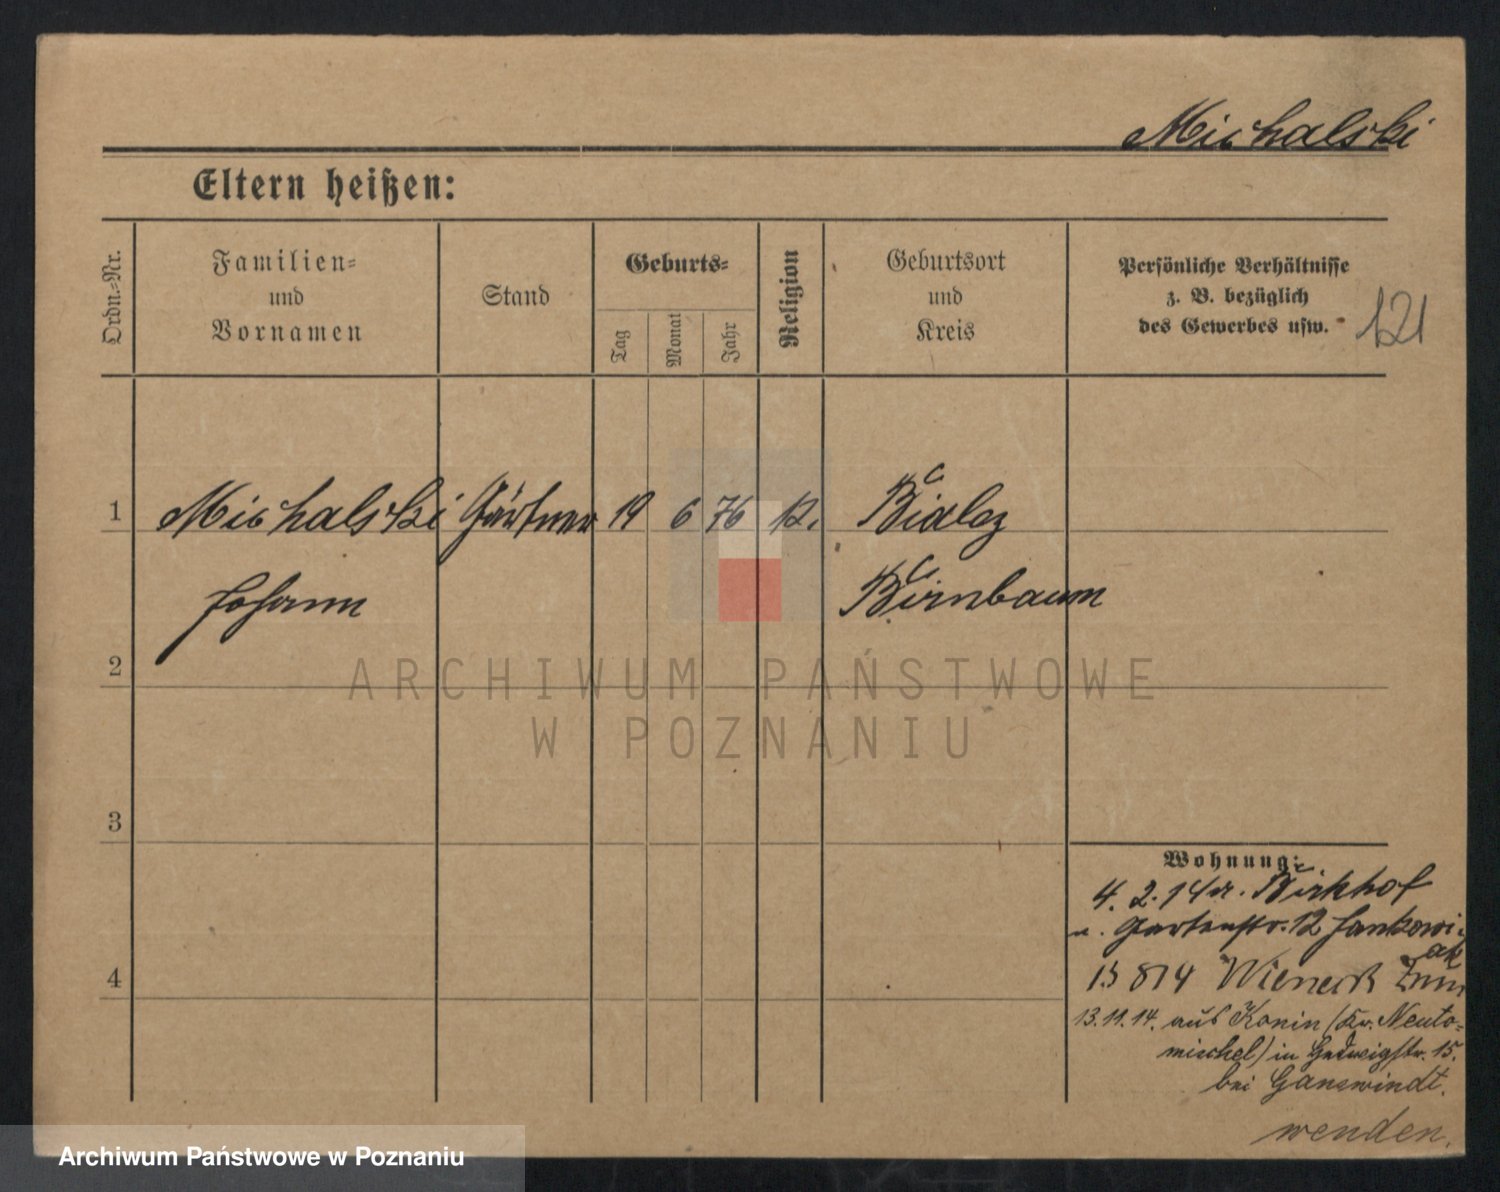 Michalski
Eltern heißen:
Ordn.-Nr.
Familien-
und
Vornamen
Stand
Geburts-
Tag
Monat
Jahr
Religion
Geburtsort
und
Kreis
Persönliche Verhältnisse
z. B. bezüglich
des Gewerbes usw.
121
1
Michalski Gärtner 19 6 76 K. Bialcz
Johann
Birnbaum
2
ARCHIWUM PAŃSTWOWE
W POZNANIU
3
Wohnung:
4. 2. 14 Birkhof
n. Gartenstr. 12 Jankowi-
ak
13 8 14
4
13. 11. 14. aus Konin (Kr. Neuto-
mischel) in Hedwigstr. 15.
bei Ganswindt.
wenden.
Archiwum Państwowe w Poznaniu